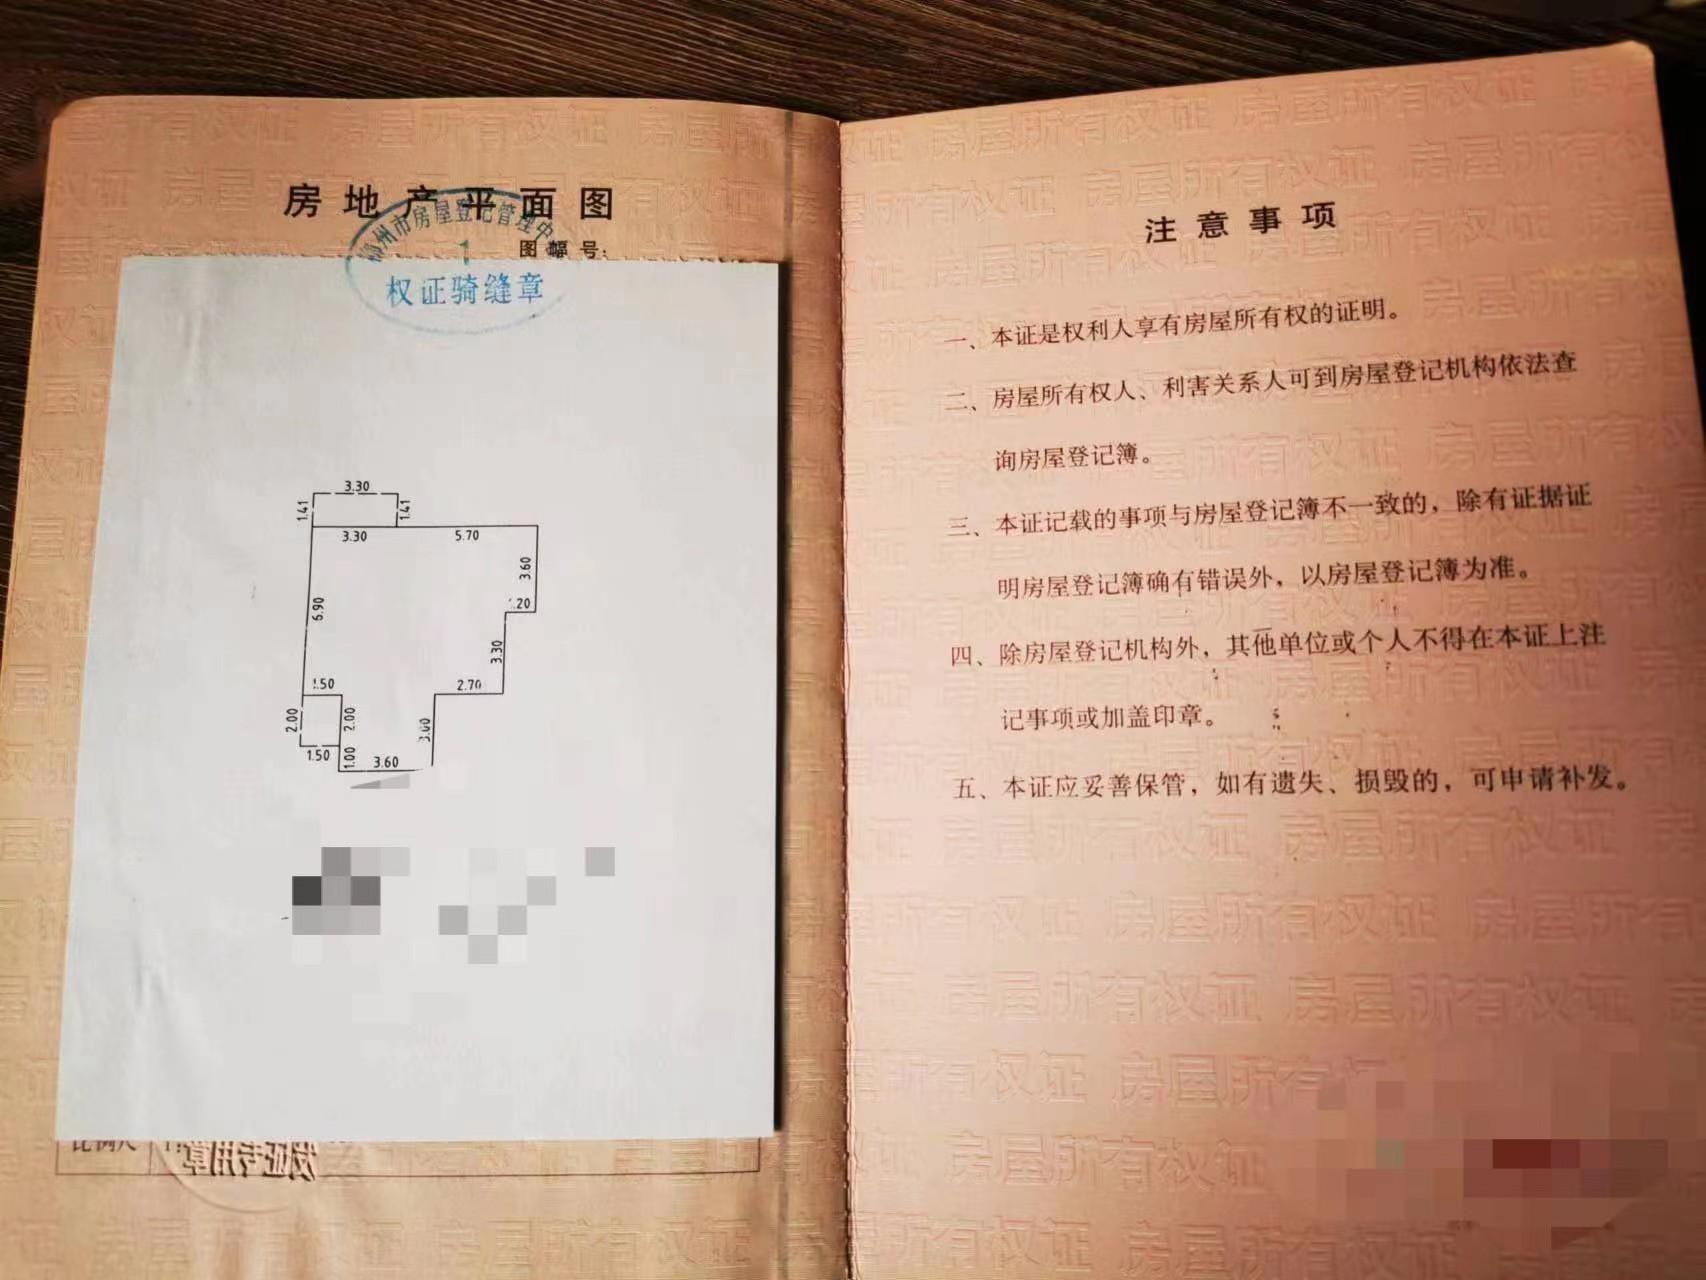 房地产平面图
郴州市房屋登记管理中
1
图幅号:
权证骑缝章
3.30
1.41
1.41
3.30
5.70
3.60
6.90
.20
3.30
1.50
2.70
2.00
2.00
3.00
1.50
1.00
3.60
比例尺
发证专用章
注意事项
一、本证是权利人享有房屋所有权的证明。
二、房屋所有权人、利害关系人可到房屋登记机构依法查
询房屋登记簿。
三、本证记载的事项与房屋登记簿不一致的，除有证据证
明房屋登记簿确有错误外，以房屋登记簿为准。
四、除房屋登记机构外，其他单位或个人不得在本证上注
记事项或加盖印章。
五、本证应妥善保管，如有遗失、损毁的，可申请补发。
房屋所有权证